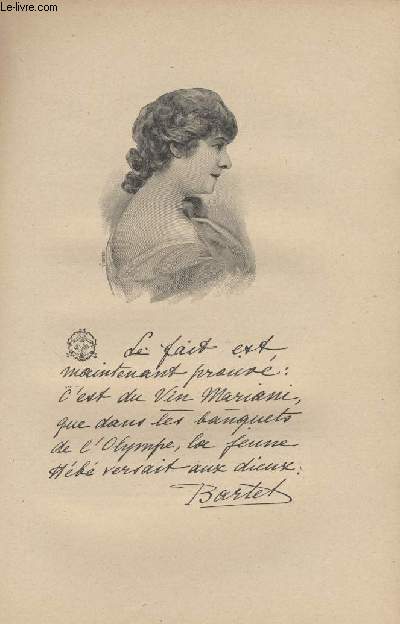 Le-livre.com
Le fait est
maintenant prouvé:
C'est du Vin Mariani,
que dans les banquets
de l'Olympe, la jeune
Hébé versait aux dieux.
Bartet